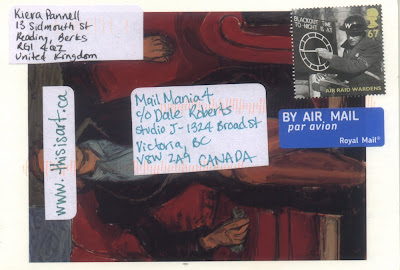 Kiera Pannell
13 Sidmouth St
Reading, Berks
RG1 4QZ
United Kingdom
BLACKOUT TIME
TO-NIGHT IS AT
W
67
AIR RAID WARDENS
BY AIR MAIL
par avion
Royal Mail
Mail Mania 4
c/o Dale Roberts
Studio J- 1324 Broad St
Victoria, BC
V8W 2A9 CANADA
www.thisisart.ca